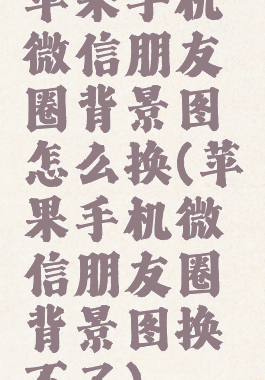 苹果手机
微信朋友
圈背景图
怎么换(苹
果手机微
信朋友圈
背景图换
不了)